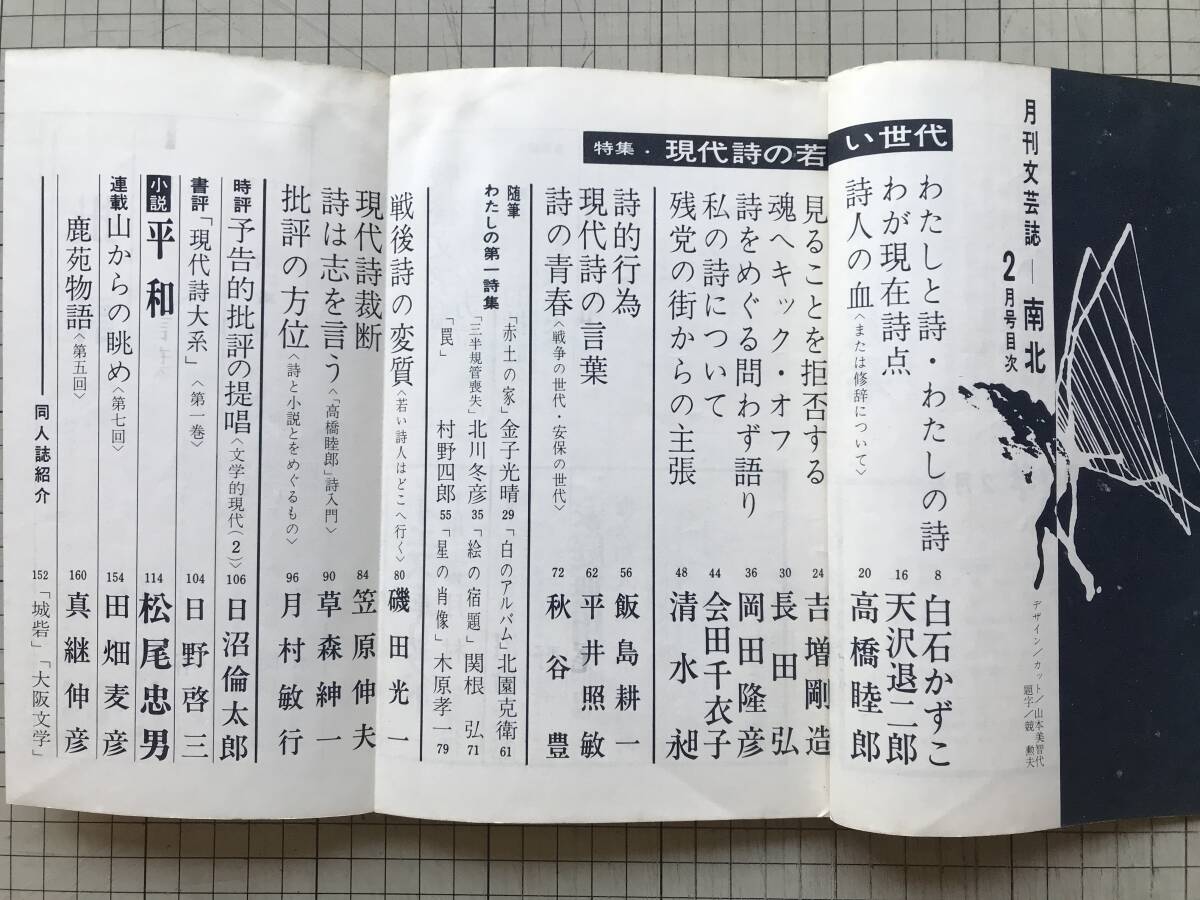 月刊文芸誌―南北
2月号目次
デザイン/カット/山本美智代
題字/競 勲夫
特集・現代詩の若い世代
わたしと詩・わたしの詩 8 白石かずこ
わが現在詩点 16 天沢退二郎
詩人の血〈または修辞について〉 20 高橋睦郎
見ることを拒否する 24 吉増剛造
魂へキック・オフ 30 長田弘
詩をめぐる問わず語り 36 岡田隆彦
私の詩について 44 会田千衣子
残党の街からの主張 48 清水昶
詩的行為 56 飯島耕一
現代詩の言葉 62 平井照敏
詩の青春〈戦争の世代・安保の世代〉 72 秋谷豊
随筆
わたしの第一詩集
「赤土の家」金子光晴 29 「白のアルバム」北園克衛 61
「三半規管喪失」北川冬彦 35 「絵の宿題」関根弘 71
「罠」村野四郎 55 「星の肖像」木原孝一 79
戦後詩の変質〈若い詩人はどこへ行く〉 80 磯田光一
現代詩裁断 84 笠原伸夫
詩は志を言う〈「高橋睦郎」詩入門〉 90 草森紳一
批評の方位〈詩と小説とをめぐるもの〉 96 月村敏行
時評 予告的批評の提唱〈文学的現代(2)〉 106 日沼倫太郎
書評「現代詩大系」〈第一巻〉 104 日野啓三
小説 平和 114 松尾忠男
連載 山からの眺め〈第七回〉 154 田畑麦彦
鹿苑物語〈第五回〉 160 真継伸彦
同人誌紹介 152 「城砦」「大阪文学」